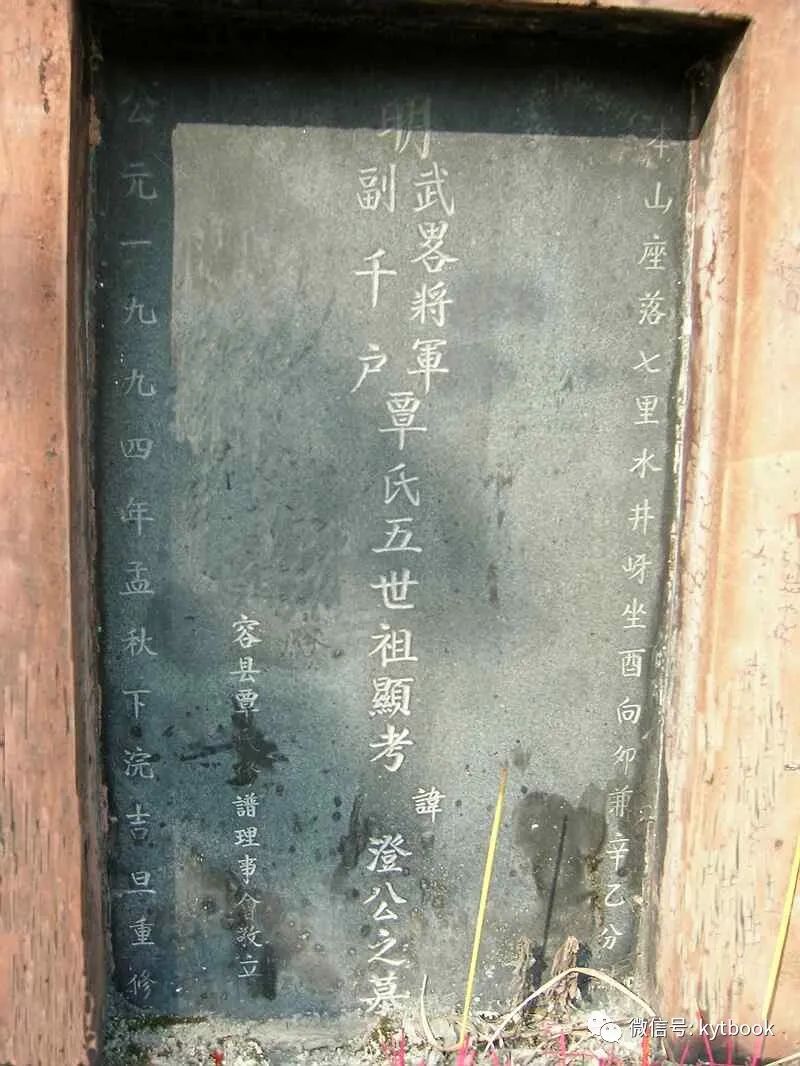 本山座落七里水井岈坐酉向卯兼辛乙分
明
武畧將軍
副千户
覃氏五世祖顯考
諱
澄公之墓
容县覃氏修譜理事會敬立
公元一九九四年孟秋下浣吉旦重修
微信号: kytbook